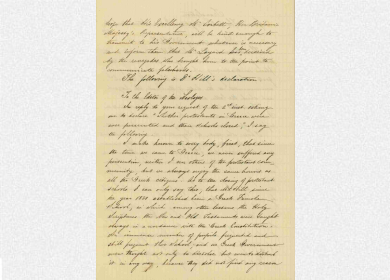 hope that his Excellency Mr Corbett, Her Britannic
Majesty's Representative, will be kind enough to
transmit to his Government whatever is necessary
and inform them that Mr Layard has been
by the misguided has brought him to the point to
communicate falsehoods.
The following is Dr Hill's declaration
To the Editor of the
In reply to your request of the 2nd inst asking
me to declare whether protestants in Greece
are persecuted and their schools closed, I say
the following.
I make known to every body, first, that since
the time we came to Greece, we never suffered any
persecution, neither I am aware of the protestant com-
munity, but we always enjoy the same honour as
all the Greek citizens. As to the closing of protestant
schools I can only say this, that
the year 1831 established here a Greek
School, in which among other lessons the Holy
Scriptures the New and Old Testaments were taught
always in accordance with the Greek Constitution.
An immense number of pupils frequented and
still frequent this School, and no Greek Government
ever thought not only to dissolve but even to disturb
it in any way, because they did not find any reason